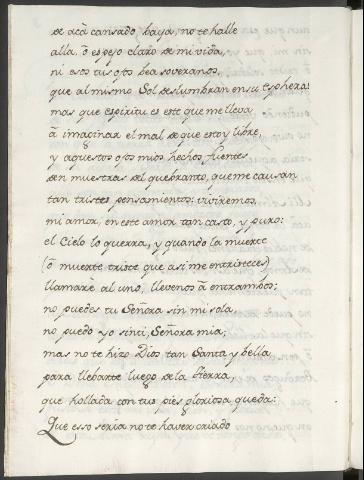 de acà cansado, haya, no te halle
alla, ô espejo claro de mi vida,
ni esos tus ojos vea soveranos,
que al mismo Sol deslumbran en su esphera:
mas que espiritu es este que me lleva
â imaginar el mal de que estoy libre,
y aquestos ojos mios hechos fuentes
den muestras del quebranto, que me causan
tan tristes pensamientos: viviremos
mi amor, en este amor tan casto, y puro:
el Cielo lo querra, y quando la muerte
(ô muerte triste que asi me entristeces)
llamare al uno, llevenos â entrambos;
no puedes tu Señora sin mi sola,
no puedo yo sinti, Señora mia,
mas no te hizo Dios tan Santa y bella
para llebarte luego de la tierra,
que hollada con tus pies gloriosa queda:
Que esso seria no te haver criado